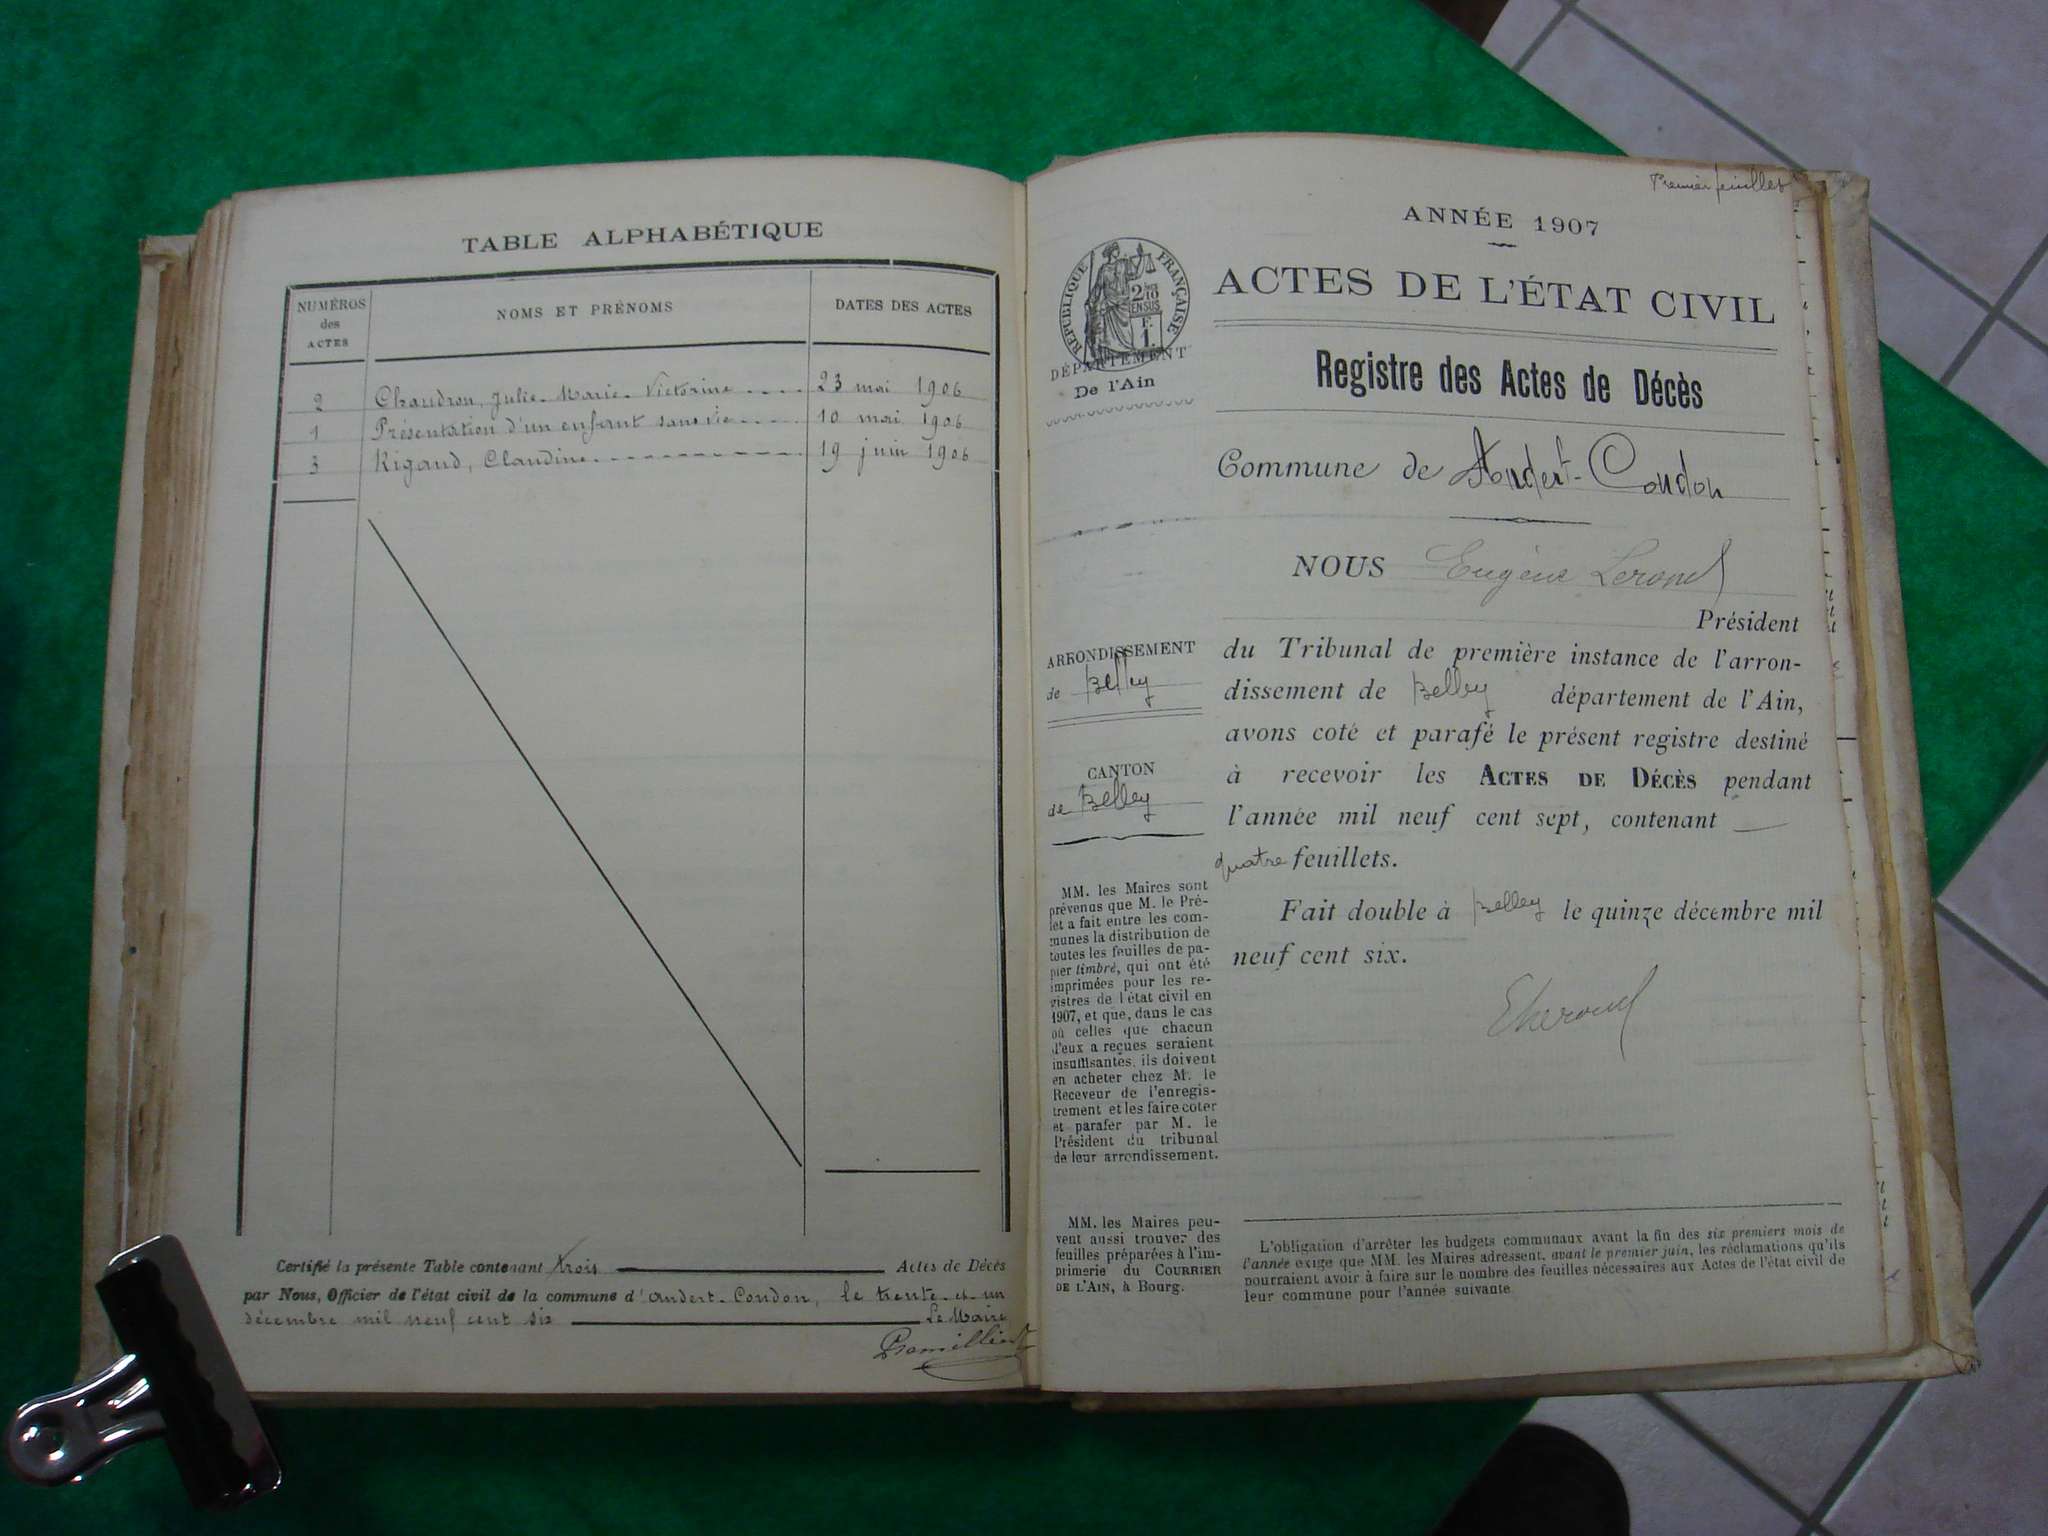 TABLE ALPHABÉTIQUE
NUMÉROS
des
ACTES
NOMS ET PRÉNOMS
DATES DES ACTES
2 Chaudron, Julie-Marie-Victorine 23 mai 1906
1 Présentation d'un enfant sans vie 10 mai 1906
3 Rigaud, Claudine 19 juin 1906
Certifié la présente Table contenant trois Actes de Décès
par Nous, Officier de l'état civil de la commune d'Andert-Condon, le trente-et-un
décembre mil neuf cent six Le Maire
Premier feuillet
ANNÉE 1907
RÉPUBLIQUE FRANÇAISE
2/10 EN SUS
F.
1.
ACTES DE L'ÉTAT CIVIL
DÉPARTEMENT
De l'Ain
Registre des Actes de Décès
Commune de Andert-Condon
NOUS Eugène
Président
ARRONDISSEMENT
de Belley
du Tribunal de première instance de l'arron-
dissement de Belley département de l'Ain,
avons coté et parafé le présent registre destiné
à recevoir les ACTES DE DÉCÈS pendant
l'année mil neuf cent sept, contenant
quatre feuillets.
CANTON
de Belley
Fait double à Belley le quinze décembre mil
neuf cent six.
MM. les Maires sont
prévenus que M. le Pré-
fet a fait entre les com-
munes la distribution de
toutes les feuilles de pa-
pier timbré, qui ont été
imprimées pour les re-
gistres de l'état civil en
1907, et que, dans le cas
où celles que chacun
d'eux a reçues seraient
insuffisantes, ils doivent
en acheter chez M. le
Receveur de l'enregis-
trement et les faire coter
et parafer par M. le
Président du tribunal
de leur arrondissement.
MM. les Maires peu-
vent aussi trouver des
feuilles préparées à l'im-
primerie du COURRIER
DE L'AIN, à Bourg.
L'obligation d'arrêter les budgets communaux avant la fin des six premiers mois de
l'année exige que MM. les Maires adressent, avant le premier juin, les réclamations qu'ils
pourraient avoir à faire sur le nombre des feuilles nécessaires aux Actes de l'état civil de
leur commune pour l'année suivante